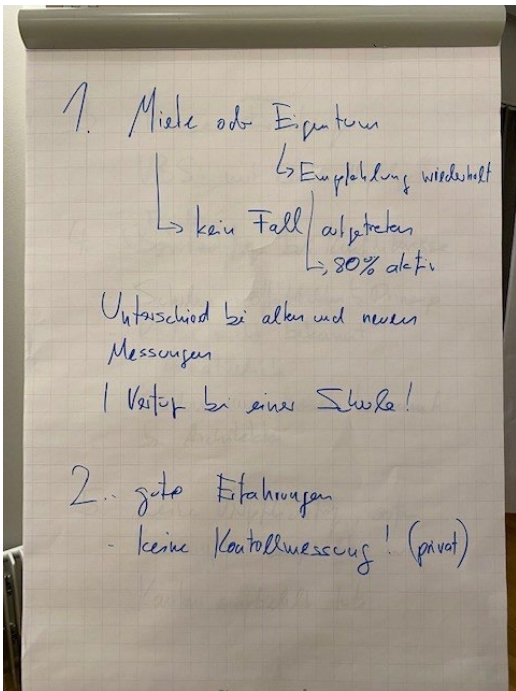 1. Miete oder Eigentum
↳ Empfehlung wiederholt
↳ kein Fall aufgetreten
↳ 80% aktiv
Unterschied bei alten und neuen
Messungen
1 Verfüg bei einer Schule!
2. - gute Erfahrungen
- keine Kontrollmessung! (privat)